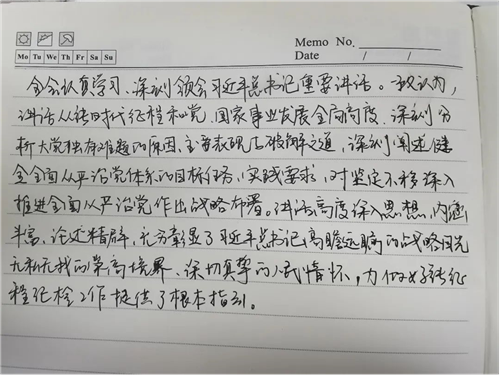 Memo No.
Mo Tu We Th Fr Sa Su
Date / /
全会认真学习、深刻领会习近平总书记重要讲话。一致认为,
讲话从新时代征程和党、国家事业发展全局高度、深刻分
析大党独有难题的原因、主要表现和破解之道,深刻阐述健
全全面从严治党体系的目标任务、实践要求,对坚定不移深入
推进全面从严治党作出战略部署。讲话高度深入思想、内涵
丰富、论述精辟、充分彰显了习近平总书记高瞻远瞩的战略目光
无私无我的崇高境界、深切真挚的人民情怀,为做好新征
程纪检工作提供了根本指引。